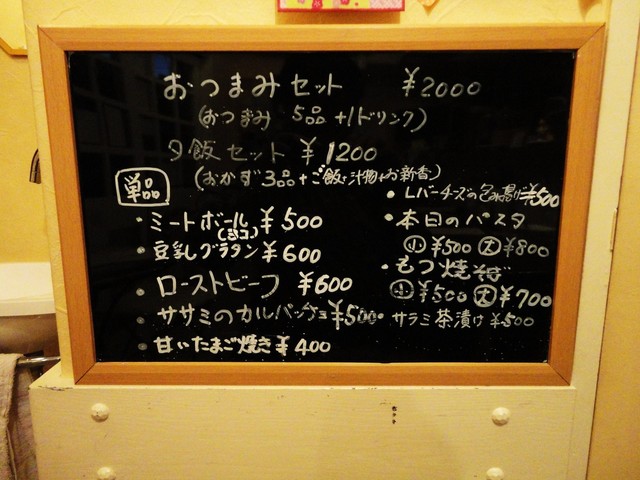 おつまみセット ¥2000
(おつまみ 5品+1ドリンク)
夕飯セット ¥1200
(おかず3品+ご飯+汁物+お新香)
単品
・ミートボール(5コ) ¥500
・豆乳グラタン ¥600
・ローストビーフ ¥600
・ササミのカルパッチョ ¥500
・甘いたまご焼き ¥400
・レバーチーズの包み揚げ ¥500
・本日のパスタ
小 ¥500 大 ¥800
・もつ焼そば
小 ¥500 大 ¥700
・サラミ茶漬け ¥500